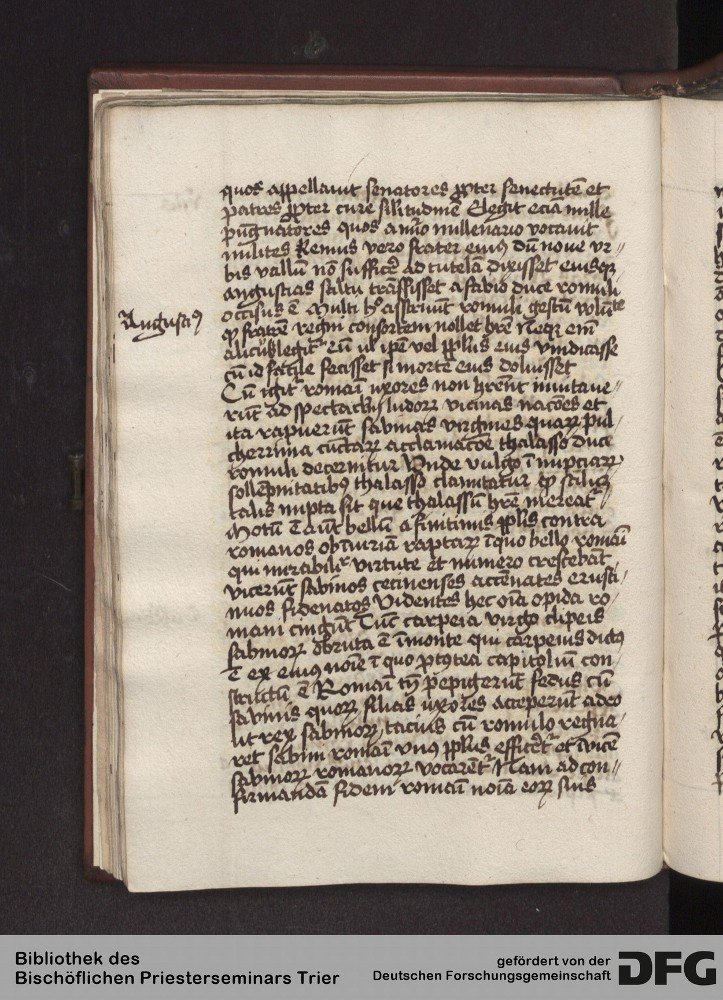 quos appellauit senatores ꝓpter senectutē et
patres ꝓpter cure silitudinē Elegit eciā mille
pugnatores quos a nūo millenario vocauit
milites Remus vero frater eius dū noue vr⸗
bis vallū nō sufficē ad tutelā dixisset eiusqꝫ
angustias saltu trāsisset a fabio duce romuli
occisus ē Multi hͦ asserunt romuli gestū volūte
Augustiꝰ
qͥ fratrē regni consortem nollet hr̄e Neqꝫ em̄
alicubi legitᷣ eū ul ip̄e vel ppl̄us eius vindicasse
cū id facile fecisset si morte eius doluisset
Cū igit᷑ romai uxores non hr̄ent inuitaue⸗
rūt ad spectaculū ludorꝝ vicinas nacōes et
ita rapuerūt sabinas virgines quarꝝ pul⸗
cherrima cūctarꝝ acclamacōe thalasso duce
romuli decernitur Unde vulgo ī nupciarꝝ
sollēpnitatibꝰ thalasso clamitatur qͥ scilicꝫ
talis nupta sit que thalassū hr̄e mereat᷑
Motū ē aūt bellū a finitimis ppl̄is contra
romanos ob īiuriam raptarꝝ ī quo bello romai
qui mirabili virtute et numero crescebāt
vicerūt sabinos cecinenses accenates crusti⸗
nuos fidenates Videntes hec oīa opida ro⸗
mani cingūt Tūc tarpeia virgo clipeis
sabinorꝝ obruta ē ī monte qui tarpeius dictꝰ
ē ex eius noīe ī quo ptotea capitoliū con⸗
structū ē Romai tn̄ pepigerūt fedus cū
sabinis quorꝝ filias uxores acceperūt adeo
ut rex sabinorꝝ tacius cū romulo regna⸗
ret sabini romai vnꝰ ppl̄us efficēt᷑ et īuicē
sabinorꝝ romanorꝝ vocarēt᷑ Nam ad con⸗
firmandā fidem romai noīa eorꝝ suis
Bibliothek des
Bischöflichen Priesterseminars Trier
gefördert von der
Deutschen Forschungsgemeinschaft
DFG